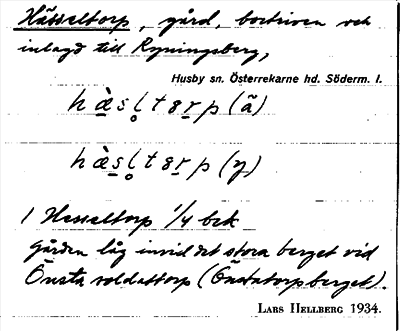 Hässeltorp, gård, bortriven och
inlagd till Ryningsberg,
Husby sn. Österrekarne hd. Söderm. l.
hàsl̥tɛrp (ã)
hàsl̥tɛrp (y)
1 Hesseltorp 1/4 bek
Gården låg invid det stora berget vid
Önsta soldattorp (Önstatorpsberget).
LARS HELLBERG 1934.